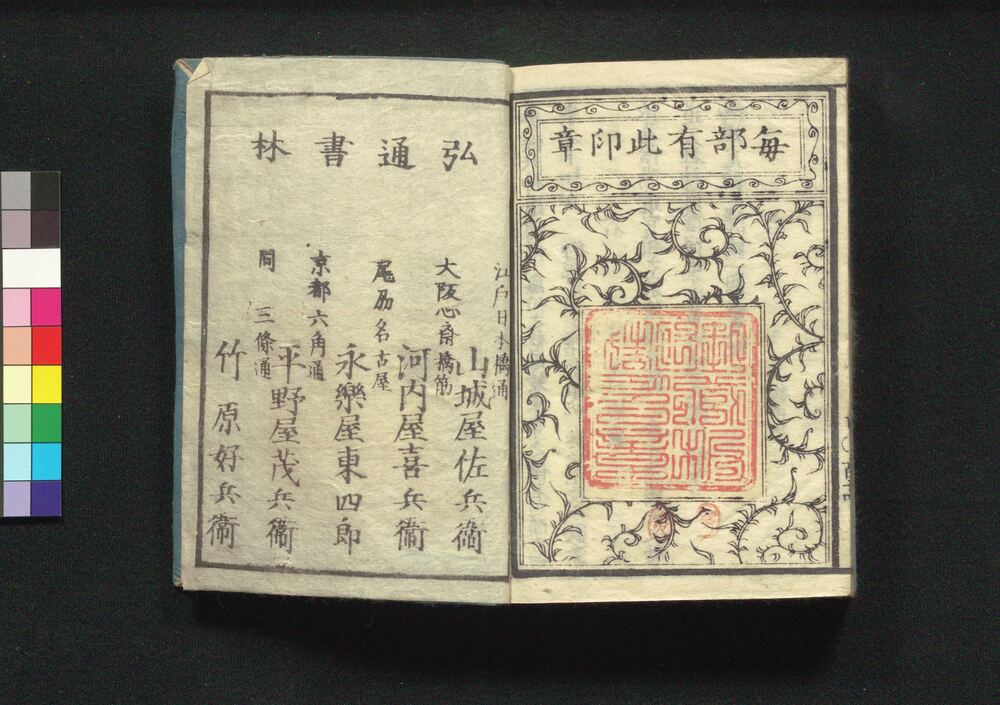 毎部有此印章
弘通書林
江戸日本橋通
山城屋佐兵衞
大阪心斎橋筋
河内屋喜兵衞
尾刕名古屋
永樂屋東四郎
京都六角通
平野屋茂兵衞
同 三條通
竹原好兵衞